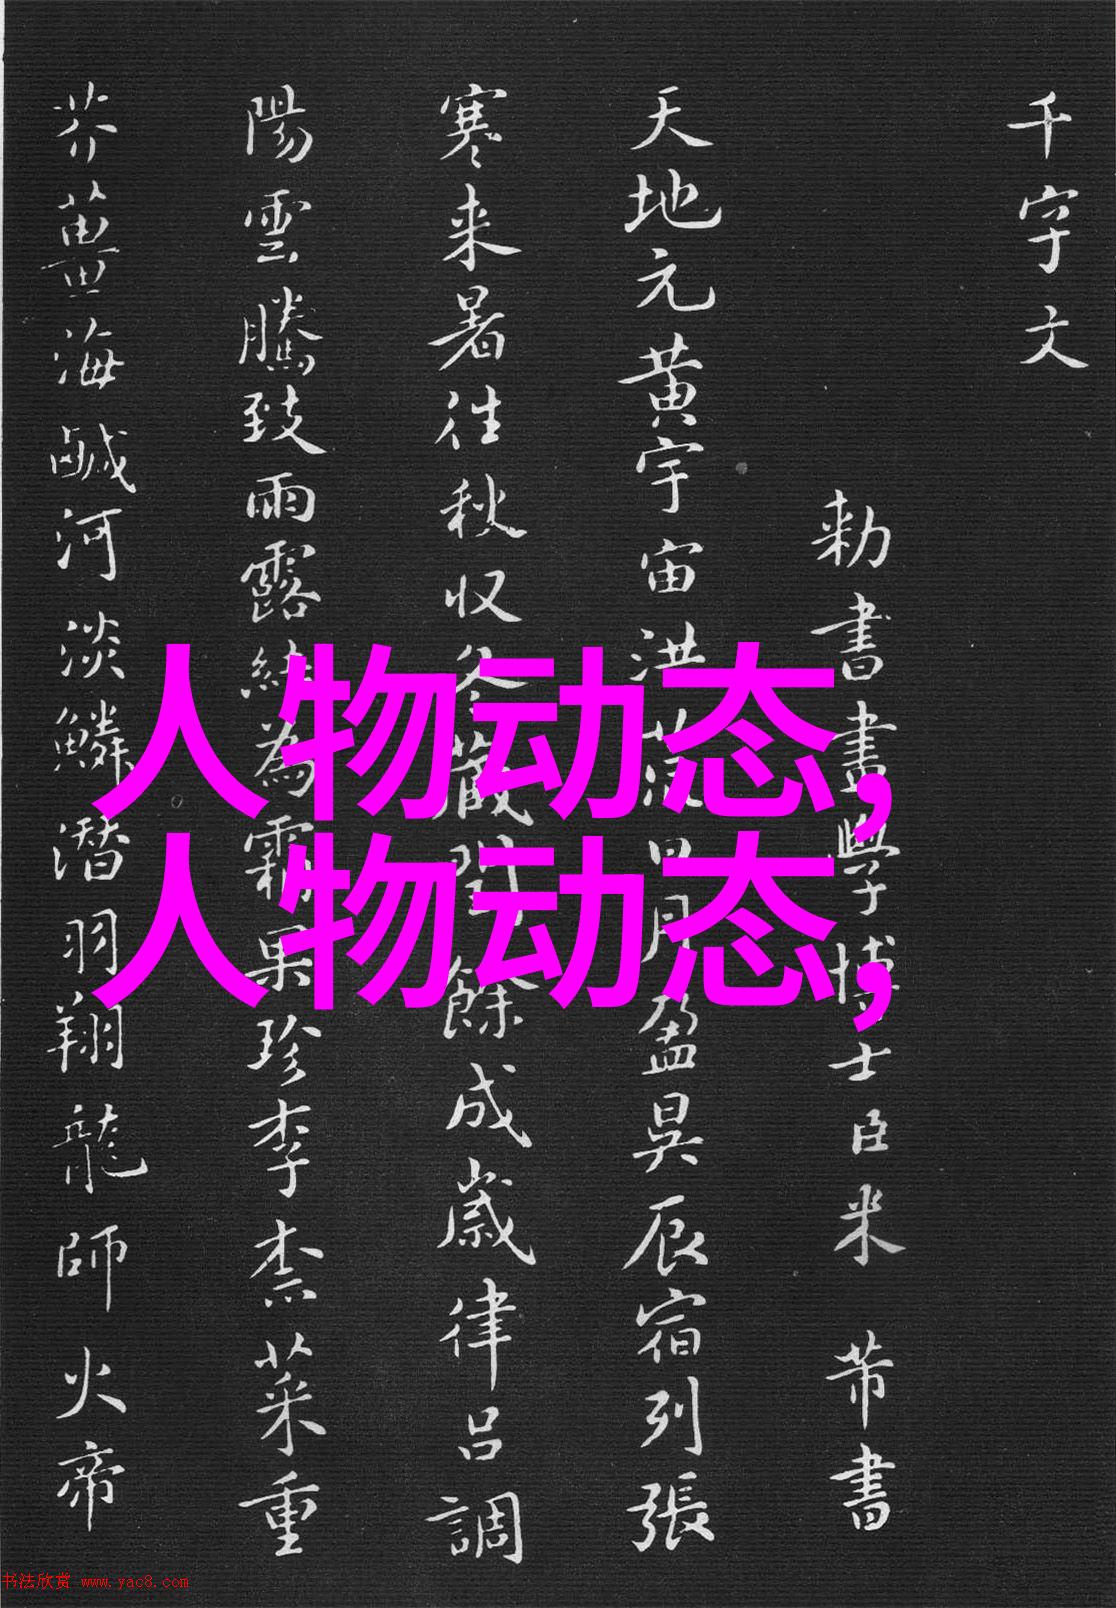 千字文
勅書畫學博士臣米芾書
天地元黄宇宙洪荒日月盈昃辰宿列張
寒来暑往秋収冬藏閏餘成歲律吕調
陽雲騰致雨露結為霜果珍李柰菜重
芥薑海鹹河淡鱗潜羽翔龍師火帝
人物动态,
人物动态,
书法欣赏 www.yac8.com